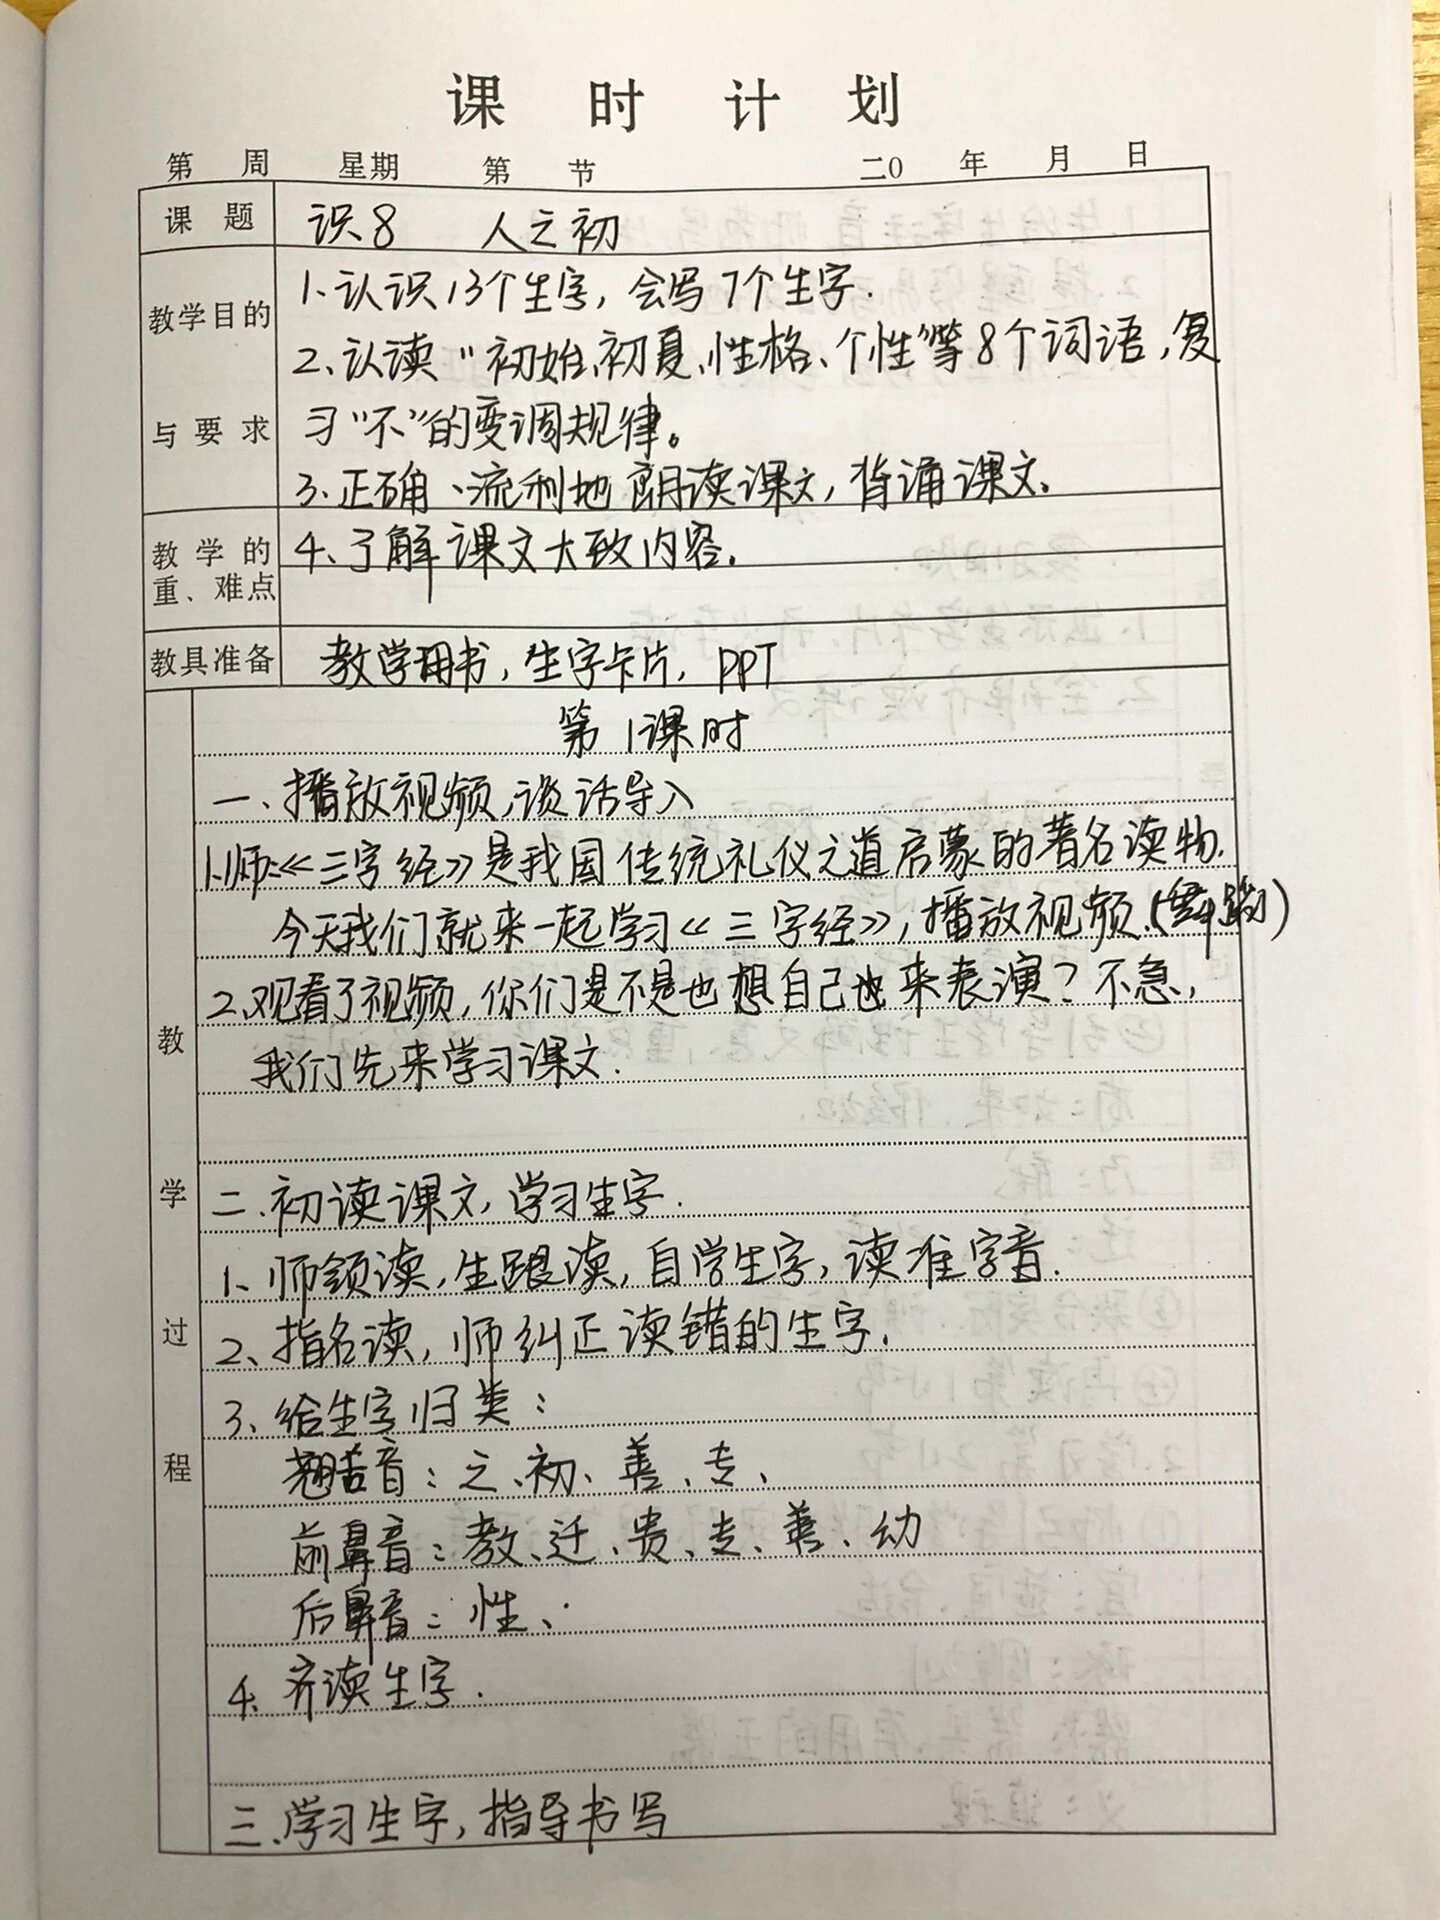 课时计划
第 周 星期 第 节 二0 年 月 日
课题 识8 人之初
教学目的与要求
1、认识13个生字，会写7个生字.
2、认读“初始、初夏、性格、个性”等8个词语，复
习“不”的变调规律。
3、正确、流利地朗读课文，背诵课文。
教学的重、难点
4、了解课文大致内容。
教具准备 教学用书，生字卡片，PPT
教学过程
第1课时
一、播放视频，谈话导入
1、师：《三字经》是我国传统礼仪之道启蒙的著名读物.
今天我们就来一起学习《三字经》，播放视频.(舞蹈)
2、观看了视频，你们是不是也想自己也来表演？不急，
我们先来学习课文.
二.初读课文，学习生字.
1、师领读，生跟读，自学生字，读准字音.
2、指名读，师纠正读错的生字.
3、给生字归类：
翘舌音：之、初、善、专、
前鼻音：教、迁、贵、专、善、幼
后鼻音：性、
4、齐读生字.
三.学习生字，指导书写